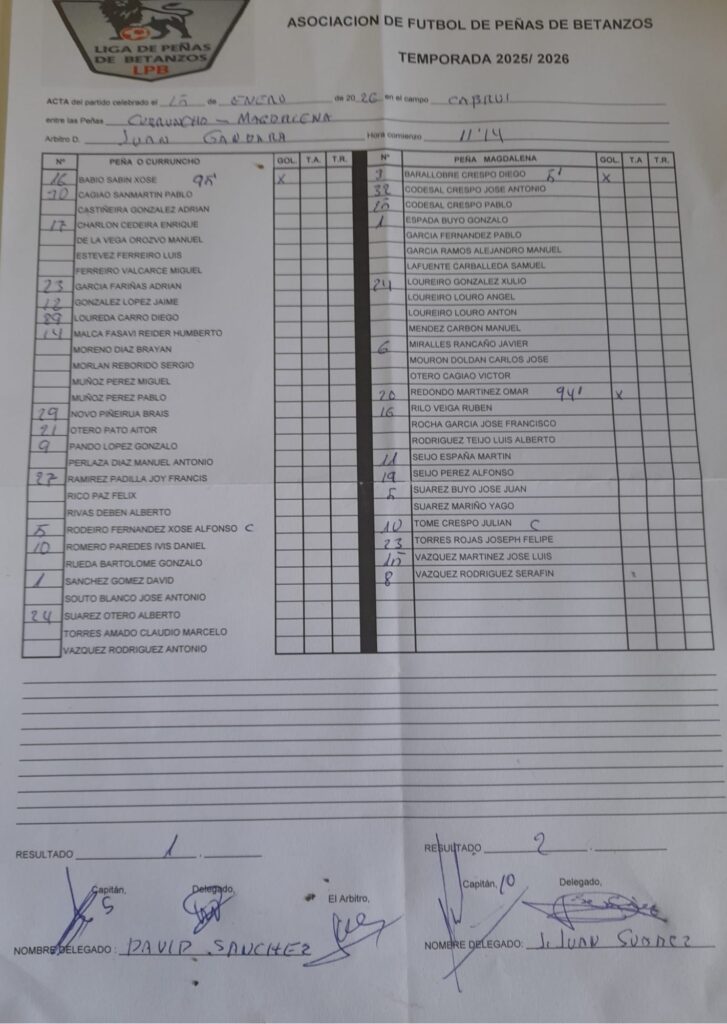 LIGA DE PEÑAS
DE BETANZOS
LPB
ASOCIACION DE FUTBOL DE PEÑAS DE BETANZOS
TEMPORADA 2025/ 2026
ACTA del partido celebrado el 15 de ENERO de 2026 en el campo CABRUI
entre las Peñas CURRUNCHO - MAGDALENA
Arbitro D. JUAN GANDARA Hora comienzo 11'14
Nº PEÑA O CURRUNCHO GOL. T.A. T.R.
16 BABIO SABIN XOSE 95' X
CAGIAO SANMARTIN PABLO
CASTIÑEIRA GONZALEZ ADRIAN
17 CHARLON CEDEIRA ENRIQUE
DE LA VEGA OROZVO MANUEL
ESTEVEZ FERREIRO LUIS
FERREIRO VALCARCE MIGUEL
23 GARCIA FARIÑAS ADRIAN
12 GONZALEZ LOPEZ JAIME
LOUREDA CARRO DIEGO
14 MALCA FASAVI REIDER HUMBERTO
MORENO DIAZ BRAYAN
MORLAN REBORIDO SERGIO
MUÑOZ PEREZ MIGUEL
MUÑOZ PEREZ PABLO
29 NOVO PIÑEIRUA BRAIS
21 OTERO PATO AITOR
9 PANDO LOPEZ GONZALO
PERLAZA DIAZ MANUEL ANTONIO
27 RAMIREZ PADILLA JOY FRANCIS
RICO PAZ FELIX
RIVAS DEBEN ALBERTO
5 RODEIRO FERNANDEZ XOSE ALFONSO C
10 ROMERO PAREDES IVIS DANIEL
RUEDA BARTOLOME GONZALO
1 SANCHEZ GOMEZ DAVID
SOUTO BLANCO JOSE ANTONIO
24 SUAREZ OTERO ALBERTO
TORRES AMADO CLAUDIO MARCELO
VAZQUEZ RODRIGUEZ ANTONIO
Nº PEÑA MAGDALENA GOL. T.A T.R.
BARALLOBRE CRESPO DIEGO 5' X
32 CODESAL CRESPO JOSE ANTONIO
CODESAL CRESPO PABLO
1 ESPADA BUYO GONZALO
GARCIA FERNANDEZ PABLO
GARCIA RAMOS ALEJANDRO MANUEL
LAFUENTE CARBALLEDA SAMUEL
24 LOUREIRO GONZALEZ XULIO
LOUREIRO LOURO ANGEL
LOUREIRO LOURO ANTON
MENDEZ CARBON MANUEL
6 MIRALLES RANCAÑO JAVIER
MOURON DOLDAN CARLOS JOSE
OTERO CAGIAO VICTOR
20 REDONDO MARTINEZ OMAR 94' X
16 RILO VEIGA RUBEN
ROCHA GARCIA JOSE FRANCISCO
RODRIGUEZ TEIJO LUIS ALBERTO
11 SEIJO ESPAÑA MARTIN
19 SEIJO PEREZ ALFONSO
5 SUAREZ BUYO JOSE JUAN
SUAREZ MARIÑO YAGO
10 TOME CRESPO JULIAN C
23 TORRES ROJAS JOSEPH FELIPE
15 VAZQUEZ MARTINEZ JOSE LUIS
8 VAZQUEZ RODRIGUEZ SERAFIN
RESULTADO 1
RESULTADO 2
Capitán, 5 Delegado, El Arbitro,
Capitán, 10 Delegado,
NOMBRE DELEGADO: DAVID SANCHEZ
NOMBRE DELEGADO: J. JUAN SUAREZ